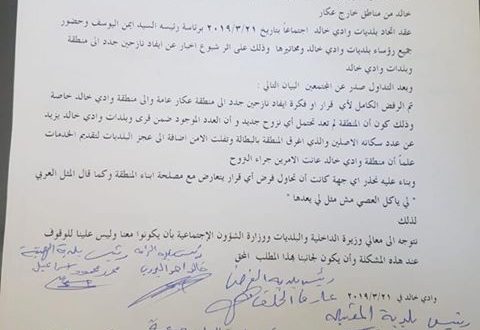 خالد من مناطق خارج عكار
عقد اتحاد بلديات وادي خالد اجتماعاً بتاريخ ٢٠١٩/٣/٢١ برئاسة رئيسه السيد ايمن اليوسف وحضور
جميع رؤساء بلديات وادي خالد ومخاتيرها وذلك على اثر شيوع اخبار عن ايفاد نازحين جدد الى منطقة
وبلدات وادي خالد
وبعد التداول صدر عن المجتمعين البيان التالي :
تم الرفض الكامل لأي قرار او فكرة ايفاد نازحين جدد الى منطقة عكار عامة والى منطقة وادي خالد خاصة
وذلك كون أن المنطقة لم تعد تحتمل أي نزوح جديد و أن العدد الموجود ضمن قرى وبلدات وادي خالد يزيد
عن عدد سكانه الاصليين والذي اغرق المنطقة بالبطالة وتفلت الامن اضافة الى عجز البلديات لتقديم الخدمات
علماً أن منطقة وادي خالد عانت الامرين جراء النزوح
وبناء عليه نحذر اي جهة كانت أن تحاول فرض أي قرار يتعارض مع مصلحة ابناء المنطقة وكما قال المثل العربي
" لي ياكل العصي مش مثل لي يعدها "
لذلك
نتوجه الى معالي وزيرة الداخلية والبلديات ووزارة الشؤون الإجتماعية بأن يكونوا معنا وليس علينا للوقوف
عند هذه المشكلة وأن يكون لجانبنا بهذا المطلب المحق
وادي خالد في ٢٠١٩/٣/٢١
رئيس بلدية الهيشة
محمد محمود اسماعيل
رئيس بلدية الرامة
خالد
رئيس بلدية الفرض
رئيس بلدية المقيبلة